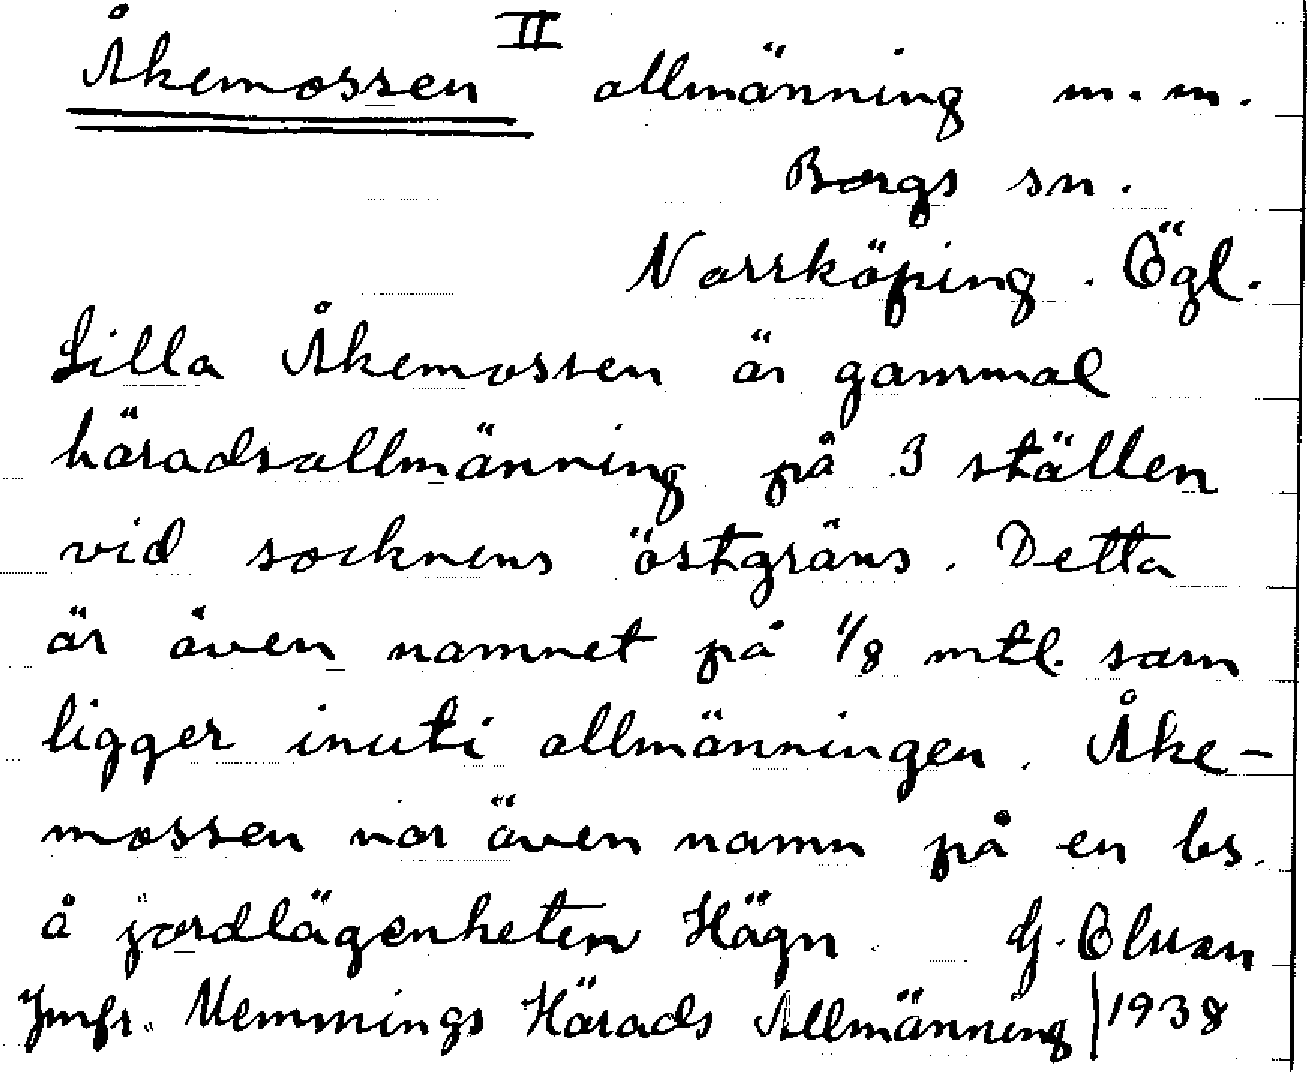 Åkemossen II allmänning m.m.
Borgs sn.
Norrköping. Ögl.
Lilla Åkemossen är gammal
häradsallmänning på 3 ställen
vid socknens östgräns. Detta
är även namnet på 1/8 mtl. som
ligger inuti allmänningen. Åke-
mossen var även namn på en bs.
å jordlägenheten Hägn. G. Olsson
Jmfr. Memmings Härads Allmänning | 1938